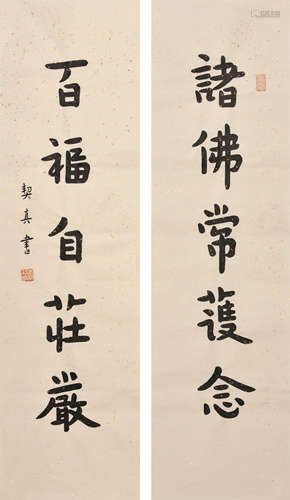 諸佛常護念
百福自莊嚴
契真書